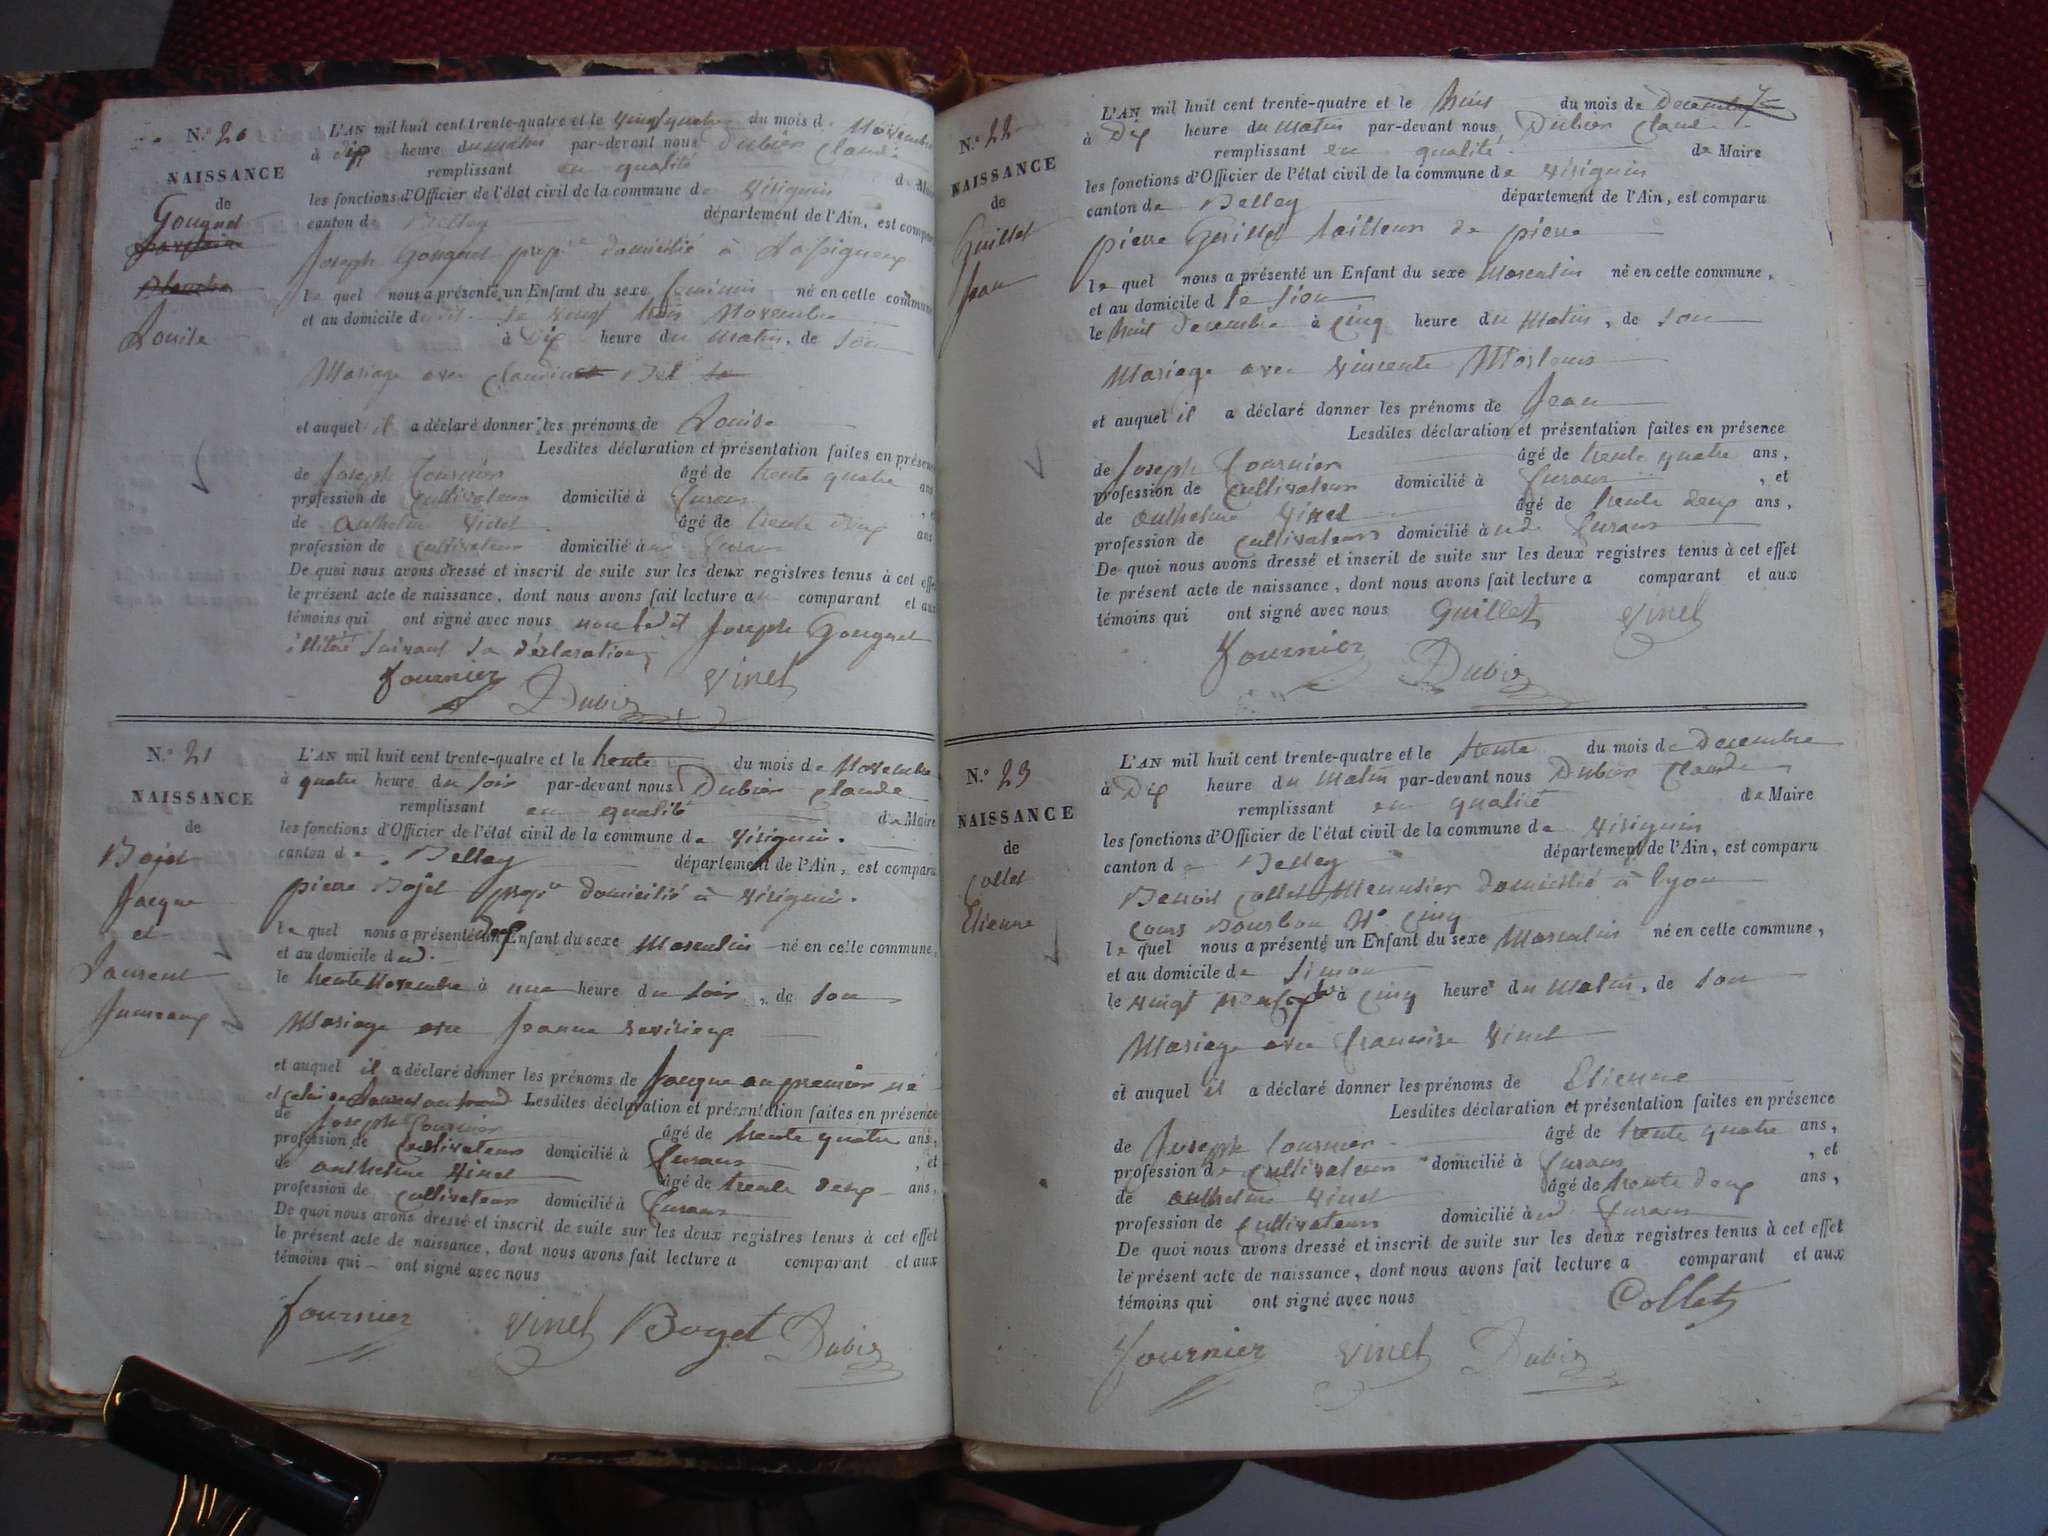 N.° 20
NAISSANCE
de
Gouguet
Louise
L'AN mil huit cent trente-quatre et le vingt quatre du mois de Novembre
à dix heure du matin par-devant nous Dubier Claude
remplissant en qualité de Maire
les fonctions d'Officier de l'état civil de la commune de Virignin
canton de Belley département de l'Ain, est comparu
Joseph Gouguet prop.re domicilié à
le quel nous a présenté un Enfant du sexe feminin né en cette commune
et au domicile du dit le vingt trois Novembre
à Dix heure du matin, de son
Mariage avec Claudine
et auquel il a déclaré donner les prénoms de Louise
Lesdites déclaration et présentation faites en présence
de Joseph fournier âgé de trente quatre ans
profession de Cultivateur domicilié à
de anthelme Vinet âgé de trente deux ans
profession de Cultivateur domicilié à
De quoi nous avons dressé et inscrit de suite sur les deux registres tenus à cet effet
le présent acte de naissance, dont nous avons fait lecture au comparant et aux
témoins qui ont signé avec nous non ledit Joseph Gouguet
illitéré suivant sa déclaration
fournier Dubier Vinet
N.° 21
NAISSANCE
de
Bojet
Jacque
et
Laurent
Jumeaux
L'AN mil huit cent trente-quatre et le trente du mois de Novembre
à quatre heure du soir par-devant nous Dubier Claude
remplissant en qualité de Maire
les fonctions d'Officier de l'état civil de la commune de Virignin.
canton de Belley département de l'Ain, est comparu
pierre Bojet prop.re domicilié à Virignin.
le quel nous a présenté deux Enfant du sexe Masculin né en cette commune,
et au domicile d ud.
le trente Novembre à une heure du soir, de son
Mariage avec Jeanne
et auquel il a déclaré donner les prénoms de Jacque au premier né
et celui de Laurent au second Lesdites déclaration et présentation faites en présence
de Joseph fournier âgé de trente quatre ans,
profession de Cultivateur domicilié à , et
de anthelme Vinet âgé de trente deux ans,
profession de Cultivateur domicilié à
De quoi nous avons dressé et inscrit de suite sur les deux registres tenus à cet effet
le présent acte de naissance, dont nous avons fait lecture a comparant et aux
témoins qui ont signé avec nous
fournier Vinet Boget Dubier
N.° 22
NAISSANCE
de
Guillet
Jean
L'AN mil huit cent trente-quatre et le huit du mois de Decembre
à Dix heure du Matin par-devant nous Dubier Claude
remplissant en qualité de Maire
les fonctions d'Officier de l'état civil de la commune de Virignin
canton de Belley département de l'Ain, est comparu
pierre Guillet tailleur de pierre
le quel nous a présenté un Enfant du sexe Masculin né en cette commune,
et au domicile d le sien
le huit Decembre à cinq heure du Matin, de son
Mariage avec Vincente
et auquel il a déclaré donner les prénoms de Jean
Lesdites déclaration et présentation faites en présence
de Joseph fournier âgé de trente quatre ans,
profession de Cultivateur domicilié à , et
de anthelme Vinet âgé de trente deux ans,
profession de Cultivateur domicilié à
De quoi nous avons dressé et inscrit de suite sur les deux registres tenus à cet effet
le présent acte de naissance, dont nous avons fait lecture a comparant et aux
témoins qui ont signé avec nous Guillet Vinet
fournier Dubier
N.° 23
NAISSANCE
de
Collet
Etienne
L'AN mil huit cent trente-quatre et le trente du mois de Decembre
à Dix heure du Matin par-devant nous Dubier Claude
remplissant en qualité de Maire
les fonctions d'Officier de l'état civil de la commune de Virignin
canton de Belley département de l'Ain, est comparu
Benoit Collet Menusier domicilié à lyon
Cours Bourbon N° Cinq
le quel nous a présenté un Enfant du sexe Masculin né en cette commune,
et au domicile de
le vingt neuf à cinq heure du Matin, de son
Mariage avec francoise Vinet
et auquel il a déclaré donner les prénoms de Etienne
Lesdites déclaration et présentation faites en présence
de Joseph fournier âgé de trente quatre ans,
profession de Cultivateur domicilié à , et
de anthelme Vinet âgé de trente deux ans,
profession de Cultivateur domicilié à
De quoi nous avons dressé et inscrit de suite sur les deux registres tenus à cet effet
le présent acte de naissance, dont nous avons fait lecture a comparant et aux
témoins qui ont signé avec nous Collet
fournier Vinet Dubier